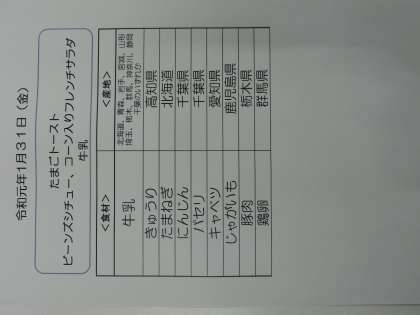 令和元年1月31日（金）
たまごトースト
ビーンズシチュー、コーン入りフレンチサラダ
牛乳
＜食材＞ ＜産地＞
牛乳 北海道、青森、岩手、宮城、山形
埼玉、栃木、群馬、神奈川、静岡
千葉のいずれか
きゅうり 高知県
たまねぎ 北海道
にんじん 千葉県
パセリ 千葉県
キャベツ 愛知県
じゃがいも 鹿児島県
豚肉 栃木県
鶏卵 群馬県